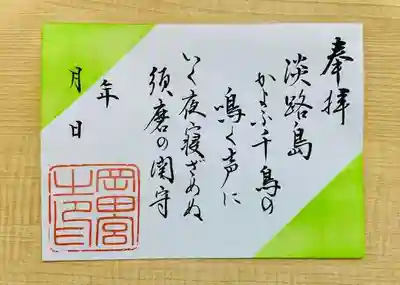 奉拝
淡路島
かよふ千鳥の
鳴く声に
いく夜寝ざめぬ
須磨の関守
年
月 日
岡田宮
之印